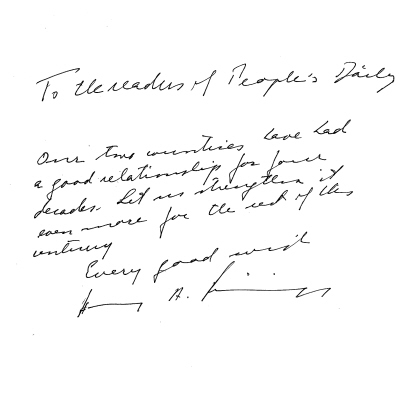 To the readers of People's Daily
Our two countries have had
a good relationship for four
decades. Let us strengthen it
even more for the rest of this
century
Every good wish
H A.